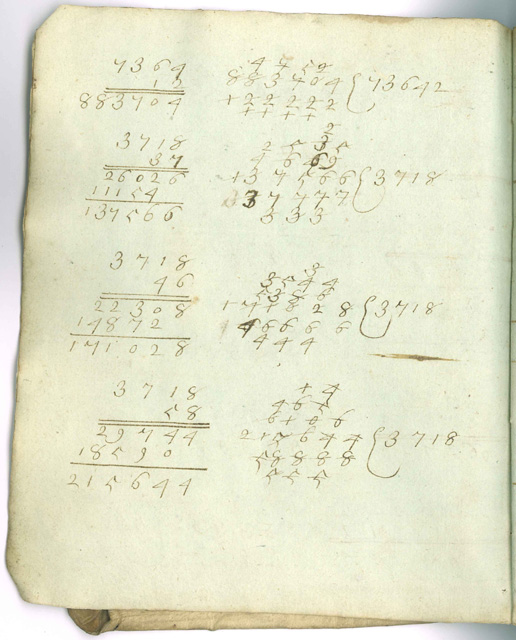 7364
12
883704
4 2 5 0
883704 { 73642
+22222
++++
3718
37
26026
11154
137566
2
2 5 3 5
4 6 6 9
137566 { 3718
37777
333
3718
46
22308
14872
171028
3
3 5 4 4
171028 { 3718
46666
444
3718
58
29744
18590
215644
+ 4
4 6 5
6 + 0 6
215644 { 3718
58888
555